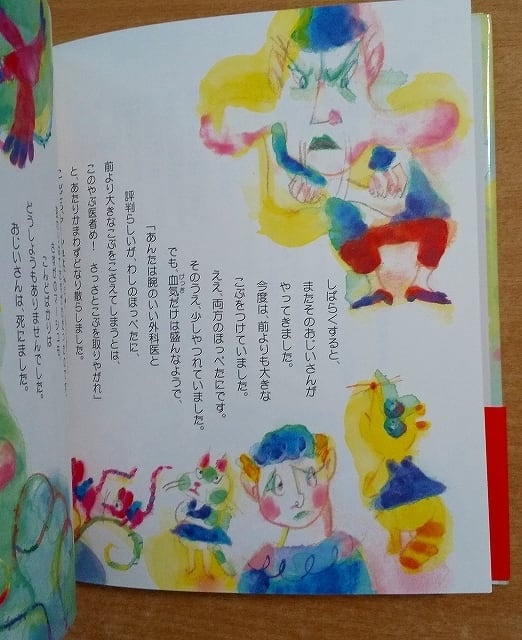 しばらくすると、
またそのおじいさんが
やってきました。
今度は、前よりも大きな
こぶをつけていました。
ええ、両方のほっぺたにです。
そのうえ、少しやつれていました。
でも、血気だけは盛んなようで、
けっき
「あんたは腕のいい外科医と
評判らしいが、わしのほっぺたに、
前より大きなこぶをこさえてしまうとは、
このやぶ医者め! さっさとこぶを取りやがれ」
と、あたりかまわずどなり散らしました。
こんどばかりは
どうしようもありませんでした。
おじいさんは、死にました。